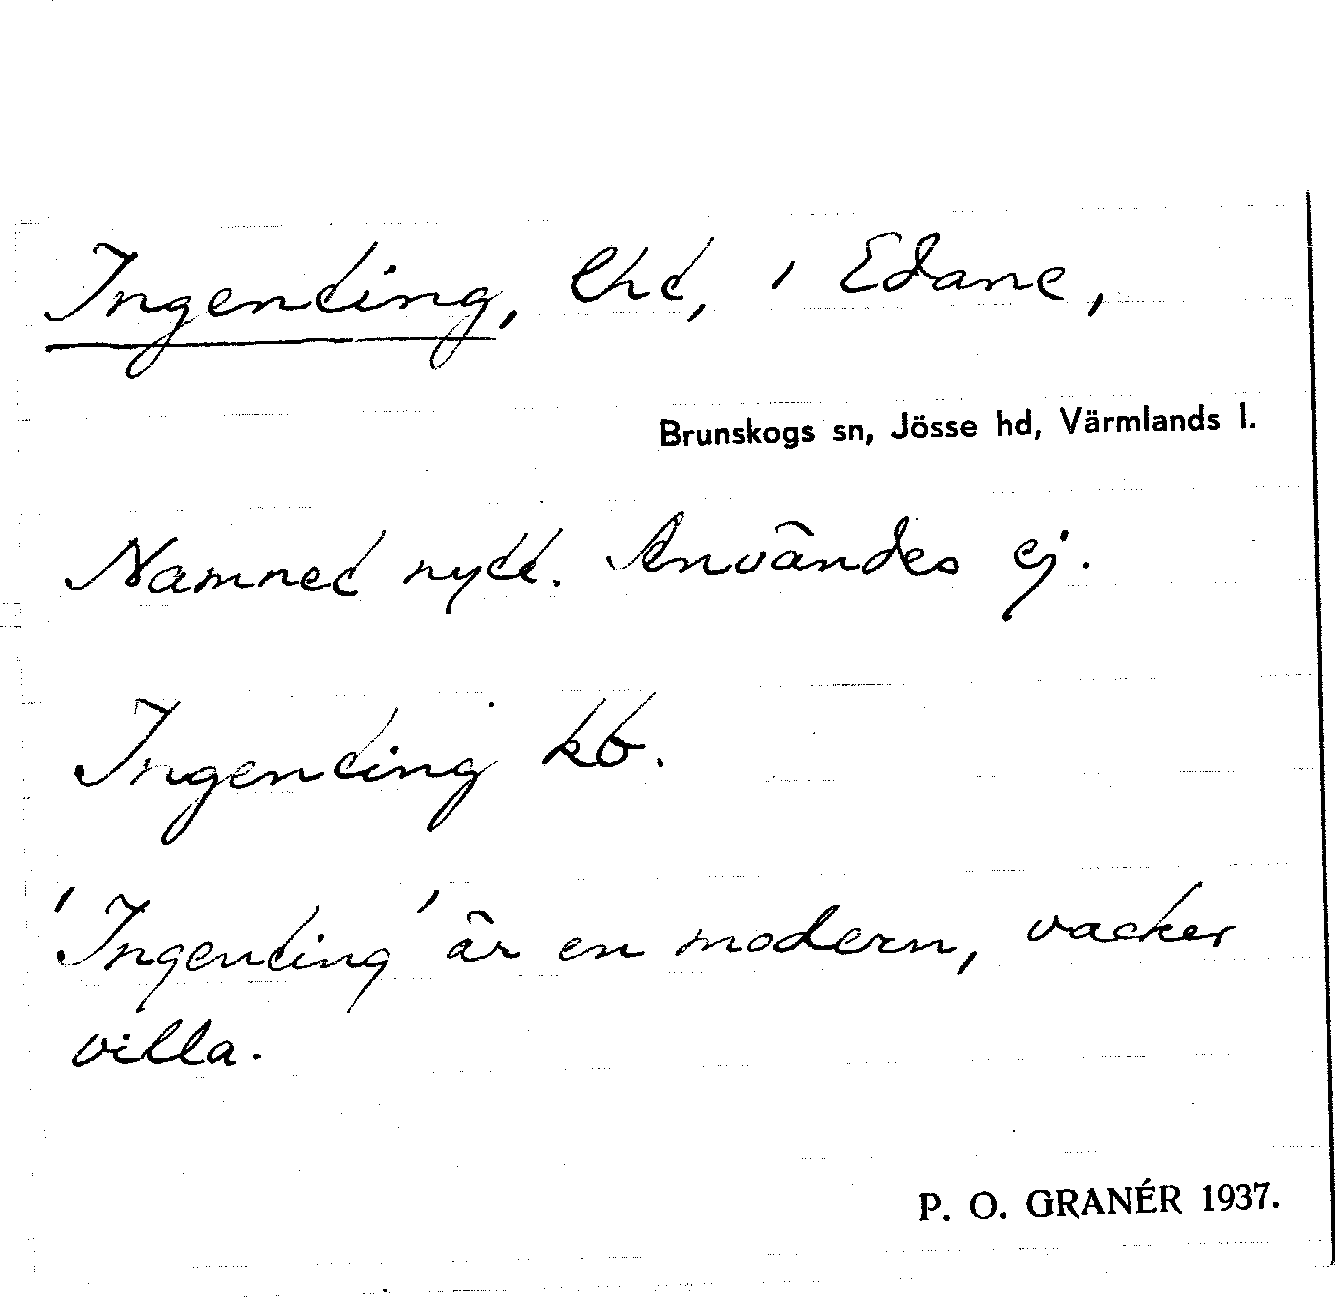 Ingenting, lht, i Edane,
Brunskogs sn, Jösse hd, Värmlands l.
Namnet nytt. Användes ej.
Ingenting kb.
'Ingenting' är en modern, vacker
villa.
P. O. GRANÉR 1937.